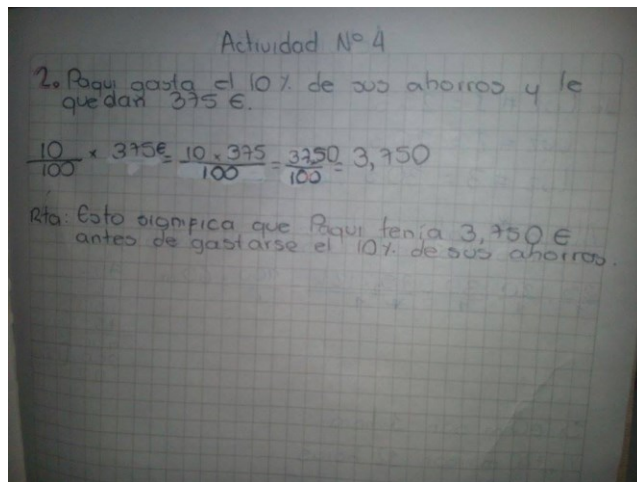 Actividad Nº 4
2. Paqui gasta el 10% de sus ahorros y le
quedan 375 €.
10/100 × 375€ = 10 × 375/100 = 3750/100 = 3,750
Rta: Esto significa que Paqui tenia 3,750 €
antes de gastarse el 10% de sus ahorros.